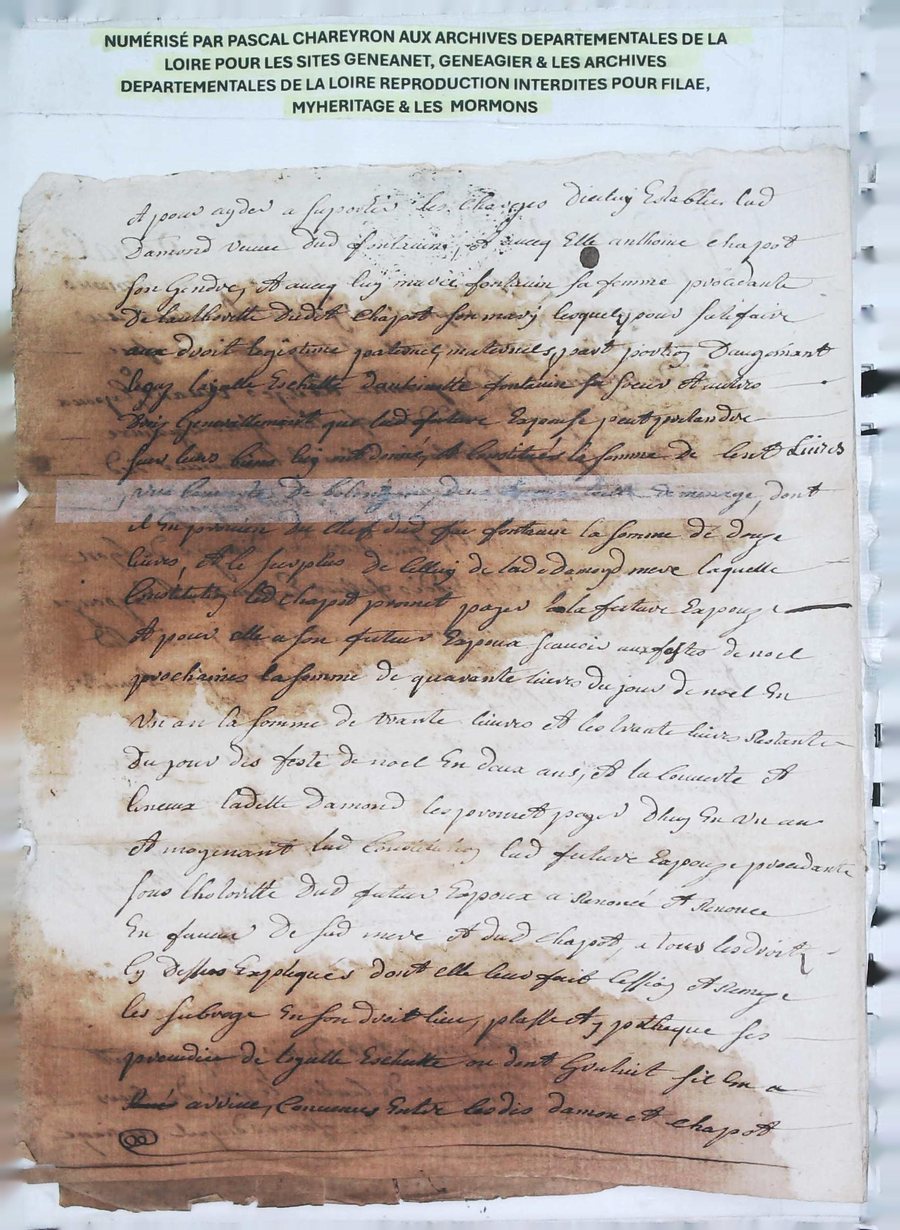 NUMÉRISÉ PAR PASCAL CHAREYRON AUX ARCHIVES DEPARTEMENTALES DE LA
LOIRE POUR LES SITES GENEANET, GENEAGIER & LES ARCHIVES
DEPARTEMENTALES DE LA LOIRE REPRODUCTION INTERDITES POUR FILAE,
MYHERITAGE & LES MORMONS
Et pour ayder a suporter les charges dicelluy Establies lad
Damond veuve dud fontanin, Et avecq Elle anthoine chapot
son Gendre, Et avecq luy marie fontanin sa femme procedante
De lauthoritté Dudit Chapot son mary lesquels, pour satisfaire
aux droit legitime paternel, maternels, part portion Daugement
legaz legalle Eschutte fontanin sa soeur Et autres
que lad future Expouse peut pretandre
sur leurs biens luy ont donné, Et Constitués la somme de Cent Livres
une Couverte De de menage, dont
il En provient du Chef dud feu fontanin la somme de douze
livres, Et le surplus de Celluy de lade Damond mere laquelle
Constitution led chapot promet payer a la future Expouze
Et pour elle a son futeur Expoux scavoir aux festes de noel
prochaines la somme de quarante livres du jour de noel En
Un an la somme de trante livres Et les trante livres Restante
Du jour des feste de noel En deux ans, Et la Couverte Et
linceux laditte Damond les promet payer Dhuy En Un an
Et moyenant lad Constitution lad future Expouze procedante
sous Dud futeur Expoux a Renoncé Et Renonce
En faveur De sad mere Et dud Chapot, a tous les droit
Cy Dessus Expliqués dont elle leur fait Cession Et Remize
les subroge En son droit lieu, plasse Et ypotheque ses
de legalle Eschutte ou dont Gratuit sil En a
arrive, Convenus Entre lesdis damon Et chapot